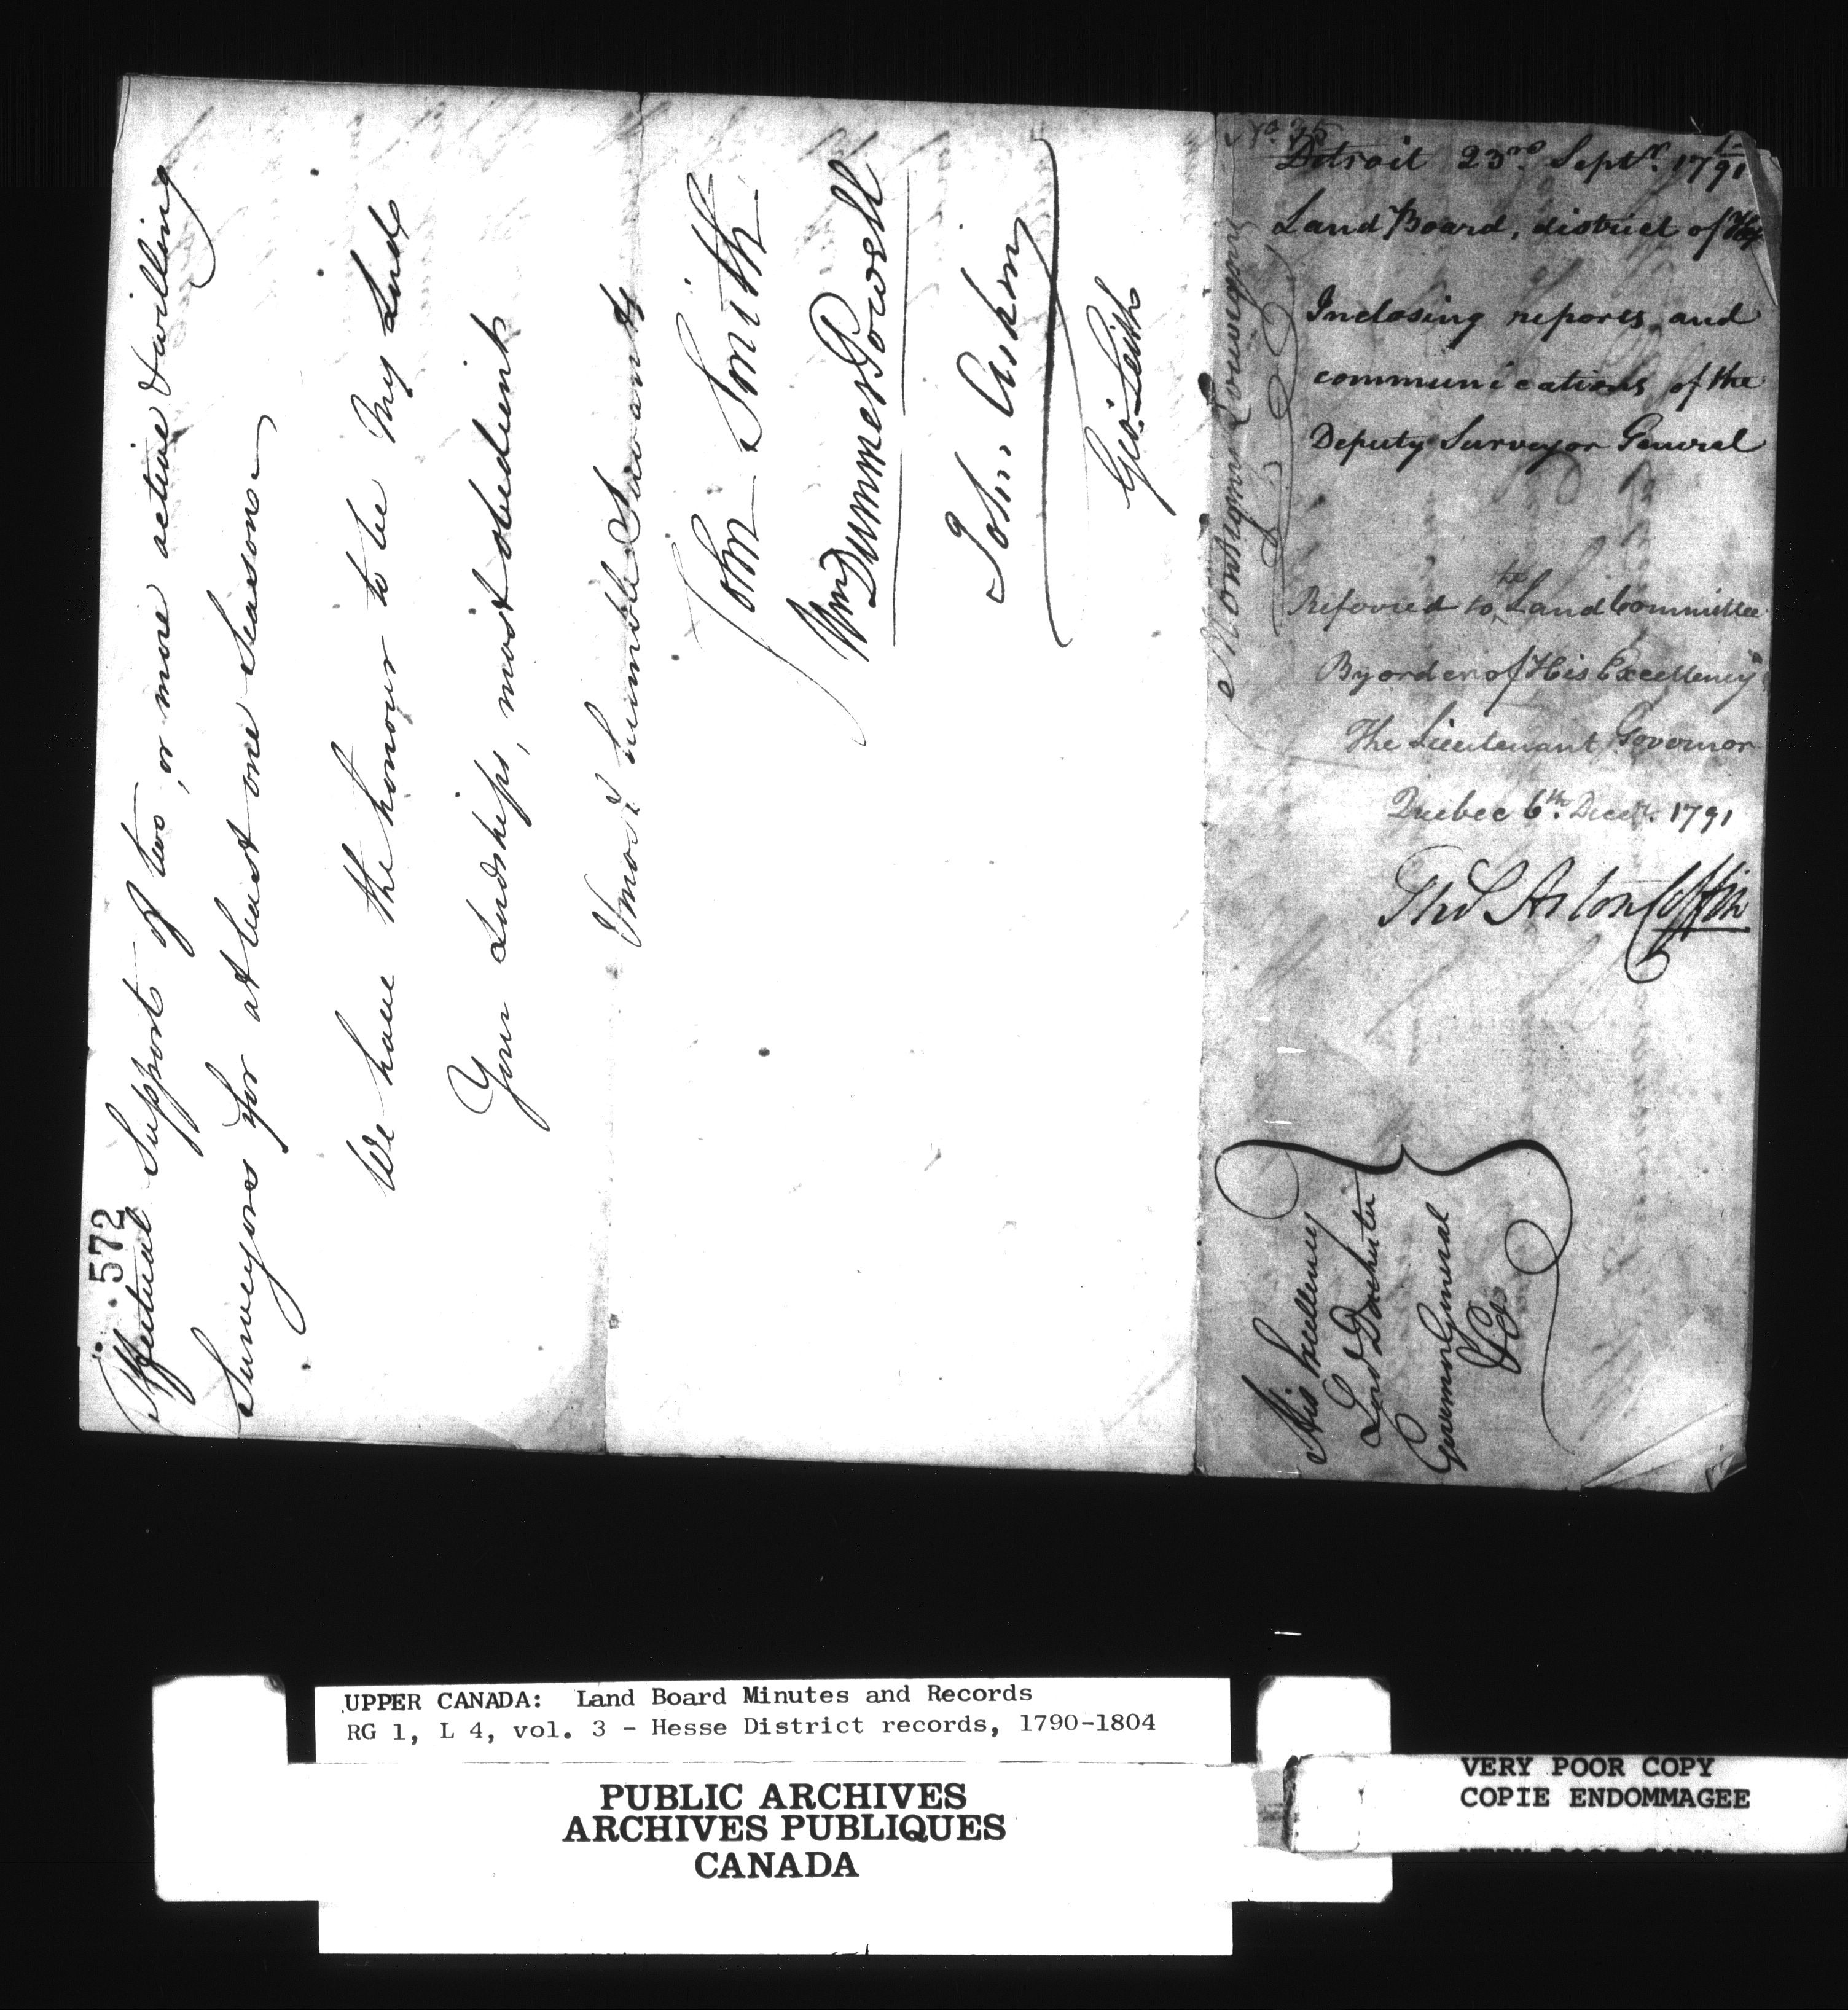 572
effectual Support of two, or more active & willing
Surveyors for at least one Season.
We have the honour to be My Lord
Your Lordships, most obedient
& most humble Servants
John Smith
Wm Dummer Powell
John Askin
Geo: Leith
No. 35
Detroit 23rd. Septr. 1791
Land Board, district of Hesse
Inclosing reports and
communications of the
Deputy Surveyor General
Referred to the Land Committee
By order of His Excellency
The Lieutenant Governor
Quebec 6th. Decr. 1791
Thos Aston Coffin
His Excellency
Lord Dorchester
Governor General
&c
UPPER CANADA: Land Board Minutes and Records
RG 1, L 4, vol. 3 - Hesse District records, 1790-1804
PUBLIC ARCHIVES
ARCHIVES PUBLIQUES
CANADA
VERY POOR COPY
COPIE ENDOMMAGEE
VERY POOR COPY